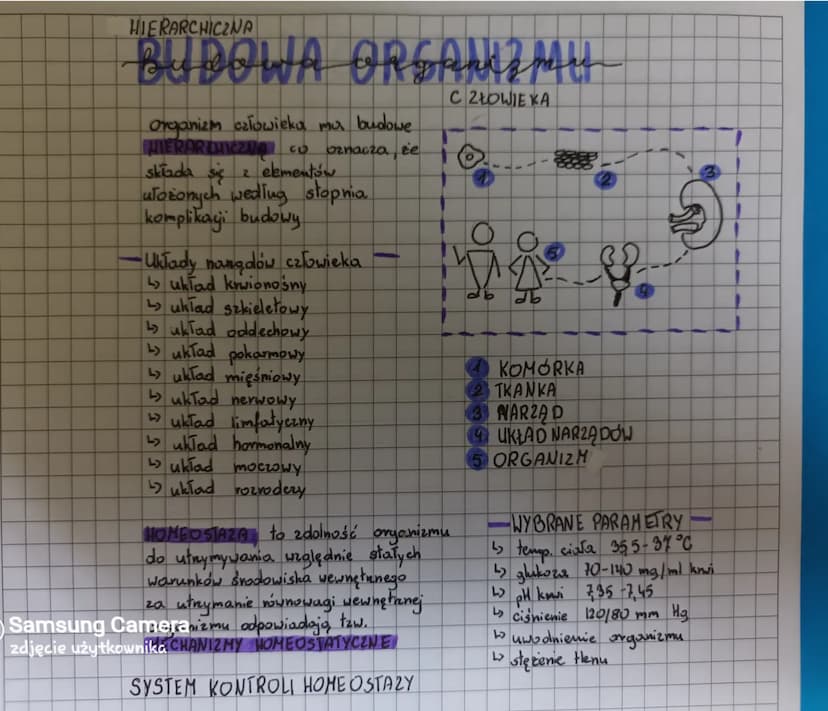 HIERARCHICZNA
BUDOWA ORGANIZMU
Budowa organizmu
CZŁOWIEKA
Organizm człowieka ma budowę
HIERARCHICZNĄ co oznacza, że
składa się z elementów
ułożonych według stopnia
komplikacji budowy
Układy narządów człowieka
↳ układ krwionośny
↳ układ szkieletowy
↳ układ oddechowy
↳ układ pokarmowy
↳ układ mięśniowy
↳ układ nerwowy
↳ układ limfatyczny
↳ układ hormonalny
↳ układ moczowy
↳ układ rozrodczy
1
2
3
5
4
1 KOMÓRKA
2 TKANKA
3 NARZĄD
4 UKŁAD NARZĄDÓW
5 ORGANIZM
HOMEOSTAZA, to zdolność organizmu
do utrzymywania względnie stałych
warunków środowiska wewnętrznego
za utrzymanie równowagi wewnętrznej
organizmu odpowiadają tzw.
MECHANIZMY HOMEOSTATYCZNE
WYBRANE PARAMETRY
↳ temp. ciała 35,5-37°C
↳ glukoza 70-140 mg/ml krwi
↳ pH krwi 7,35-7,45
↳ ciśnienie 120/80 mm Hg
↳ uwodnienie organizmu
↳ stężenie tlenu
SYSTEM KONTROLI HOMEOSTAZY
Samsung Camera
zdjęcie użytkownika